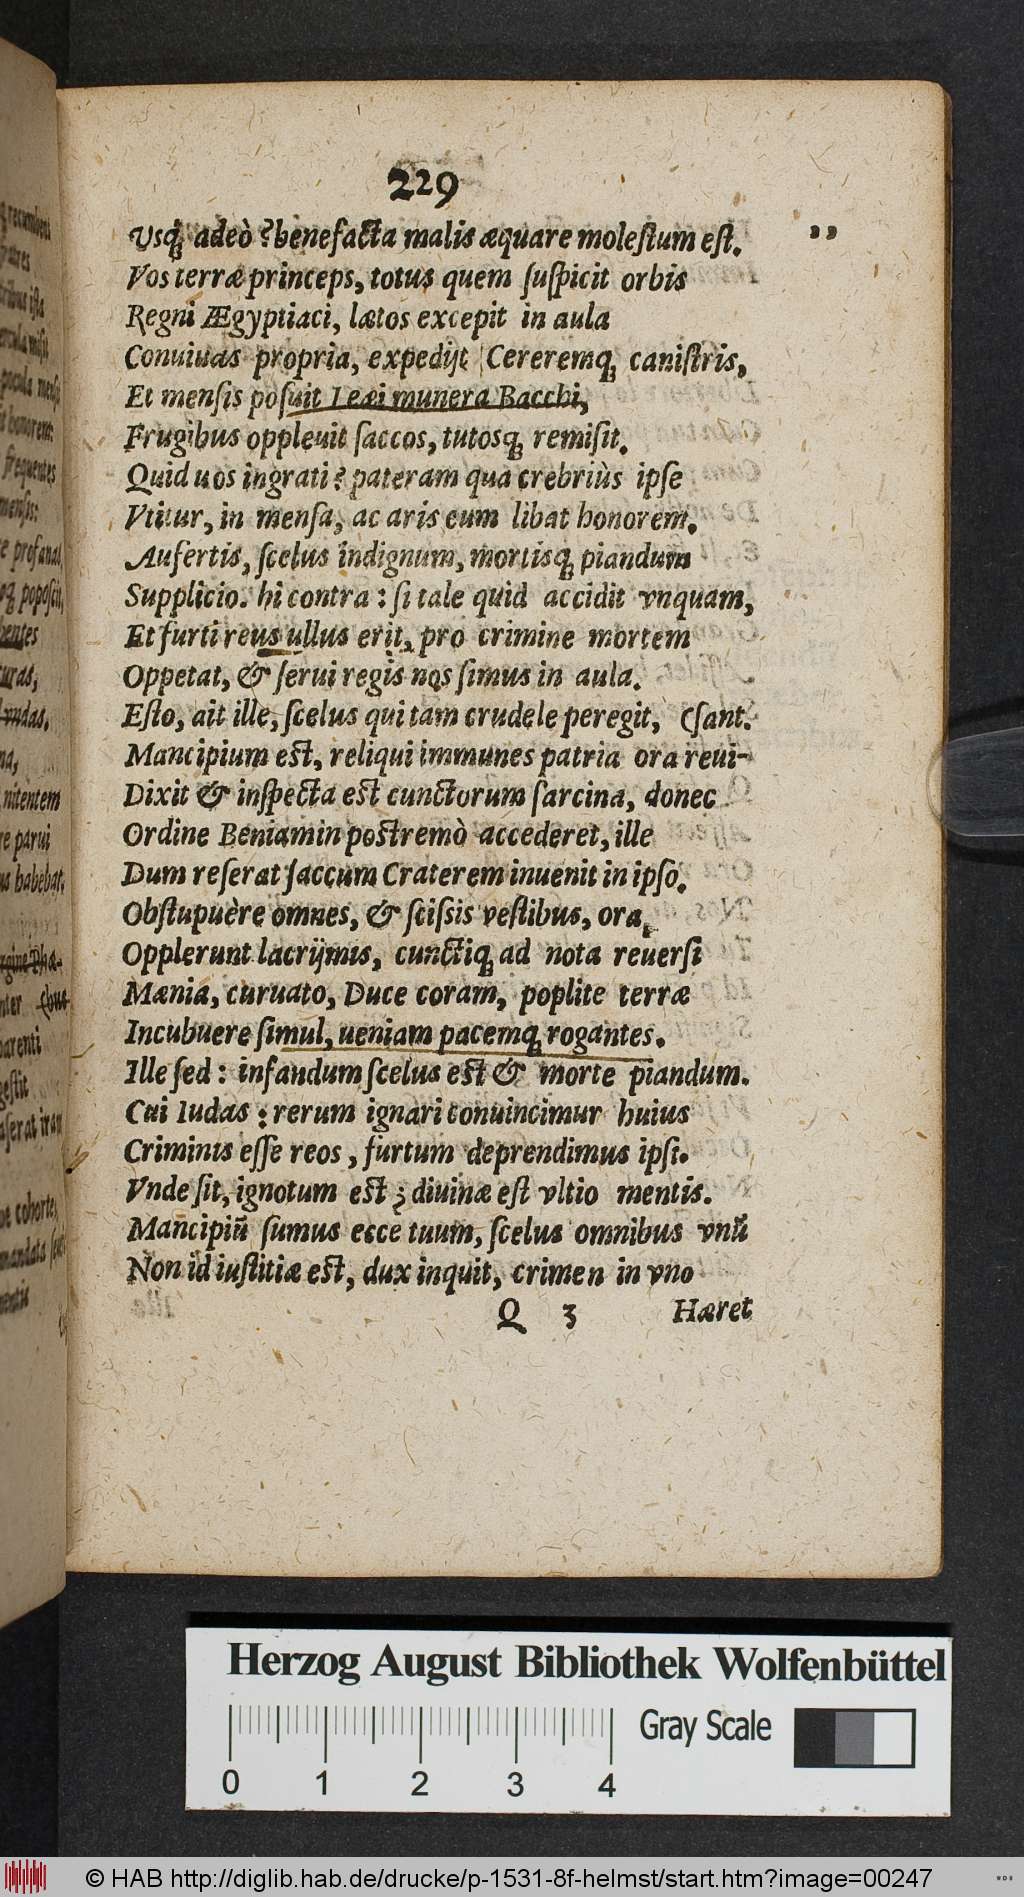 229
Vsq́; adeò? benefacta malis æquare molestum est. ”
Vos terræ princeps, totus quem suspicit orbis
Regni Ægyptiaci, lætos excepit in aula
Conuiuas propria, expedijt Cereremq́; canistris,
Et mensis posuit Leæi munera Bacchi,
Frugibus oppleuit saccos, tutosq́; remisit.
Quid uos ingrati? pateram qua crebriùs ipse
Vtitur, in mensa, ac aris eum libat honorem.
Aufertis, scelus indignum, mortisq́; piandum
Supplicio. hi contra: si tale quid accidit vnquam,
Et furti reus ullus erit, pro crimine mortem
Oppetat, & serui regis nos simus in aula.
Esto, ait ille, scelus qui tam crudele peregit, (sant.
Mancipium est, reliqui immunes patria ora reui-
Dixit & inspecta est cunctorum sarcina, donec
Ordine Beniamin postremò accederet, ille
Dum reserat saccum Craterem inuenit in ipso.
Obstupuère omnes, & scissis vestibus, ora,
Opplerunt lacrijmis, cunctiq́; ad nota reuersi
Mænia, curuato, Duce coram, poplite terræ
Incubuere simul, ueniam pacemq́; rogantes.
Ille sed: infandum scelus est & morte piandum.
Cui Iudas: rerum ignari conuincimur huius
Criminis esse reos, furtum deprendimus ipsi.
Vnde sit, ignotum est; diuinæ est vltio mentis.
Mancipiū sumus ecce tuum, scelus omnibus vnū
Non id iustitiæ est, dux inquit, crimen in vno
Q 3 Hæret
Herzog August Bibliothek Wolfenbüttel
Gray Scale
0 1 2 3 4
© HAB http://diglib.hab.de/drucke/p-1531-8f-helmst/start.htm?image=00247